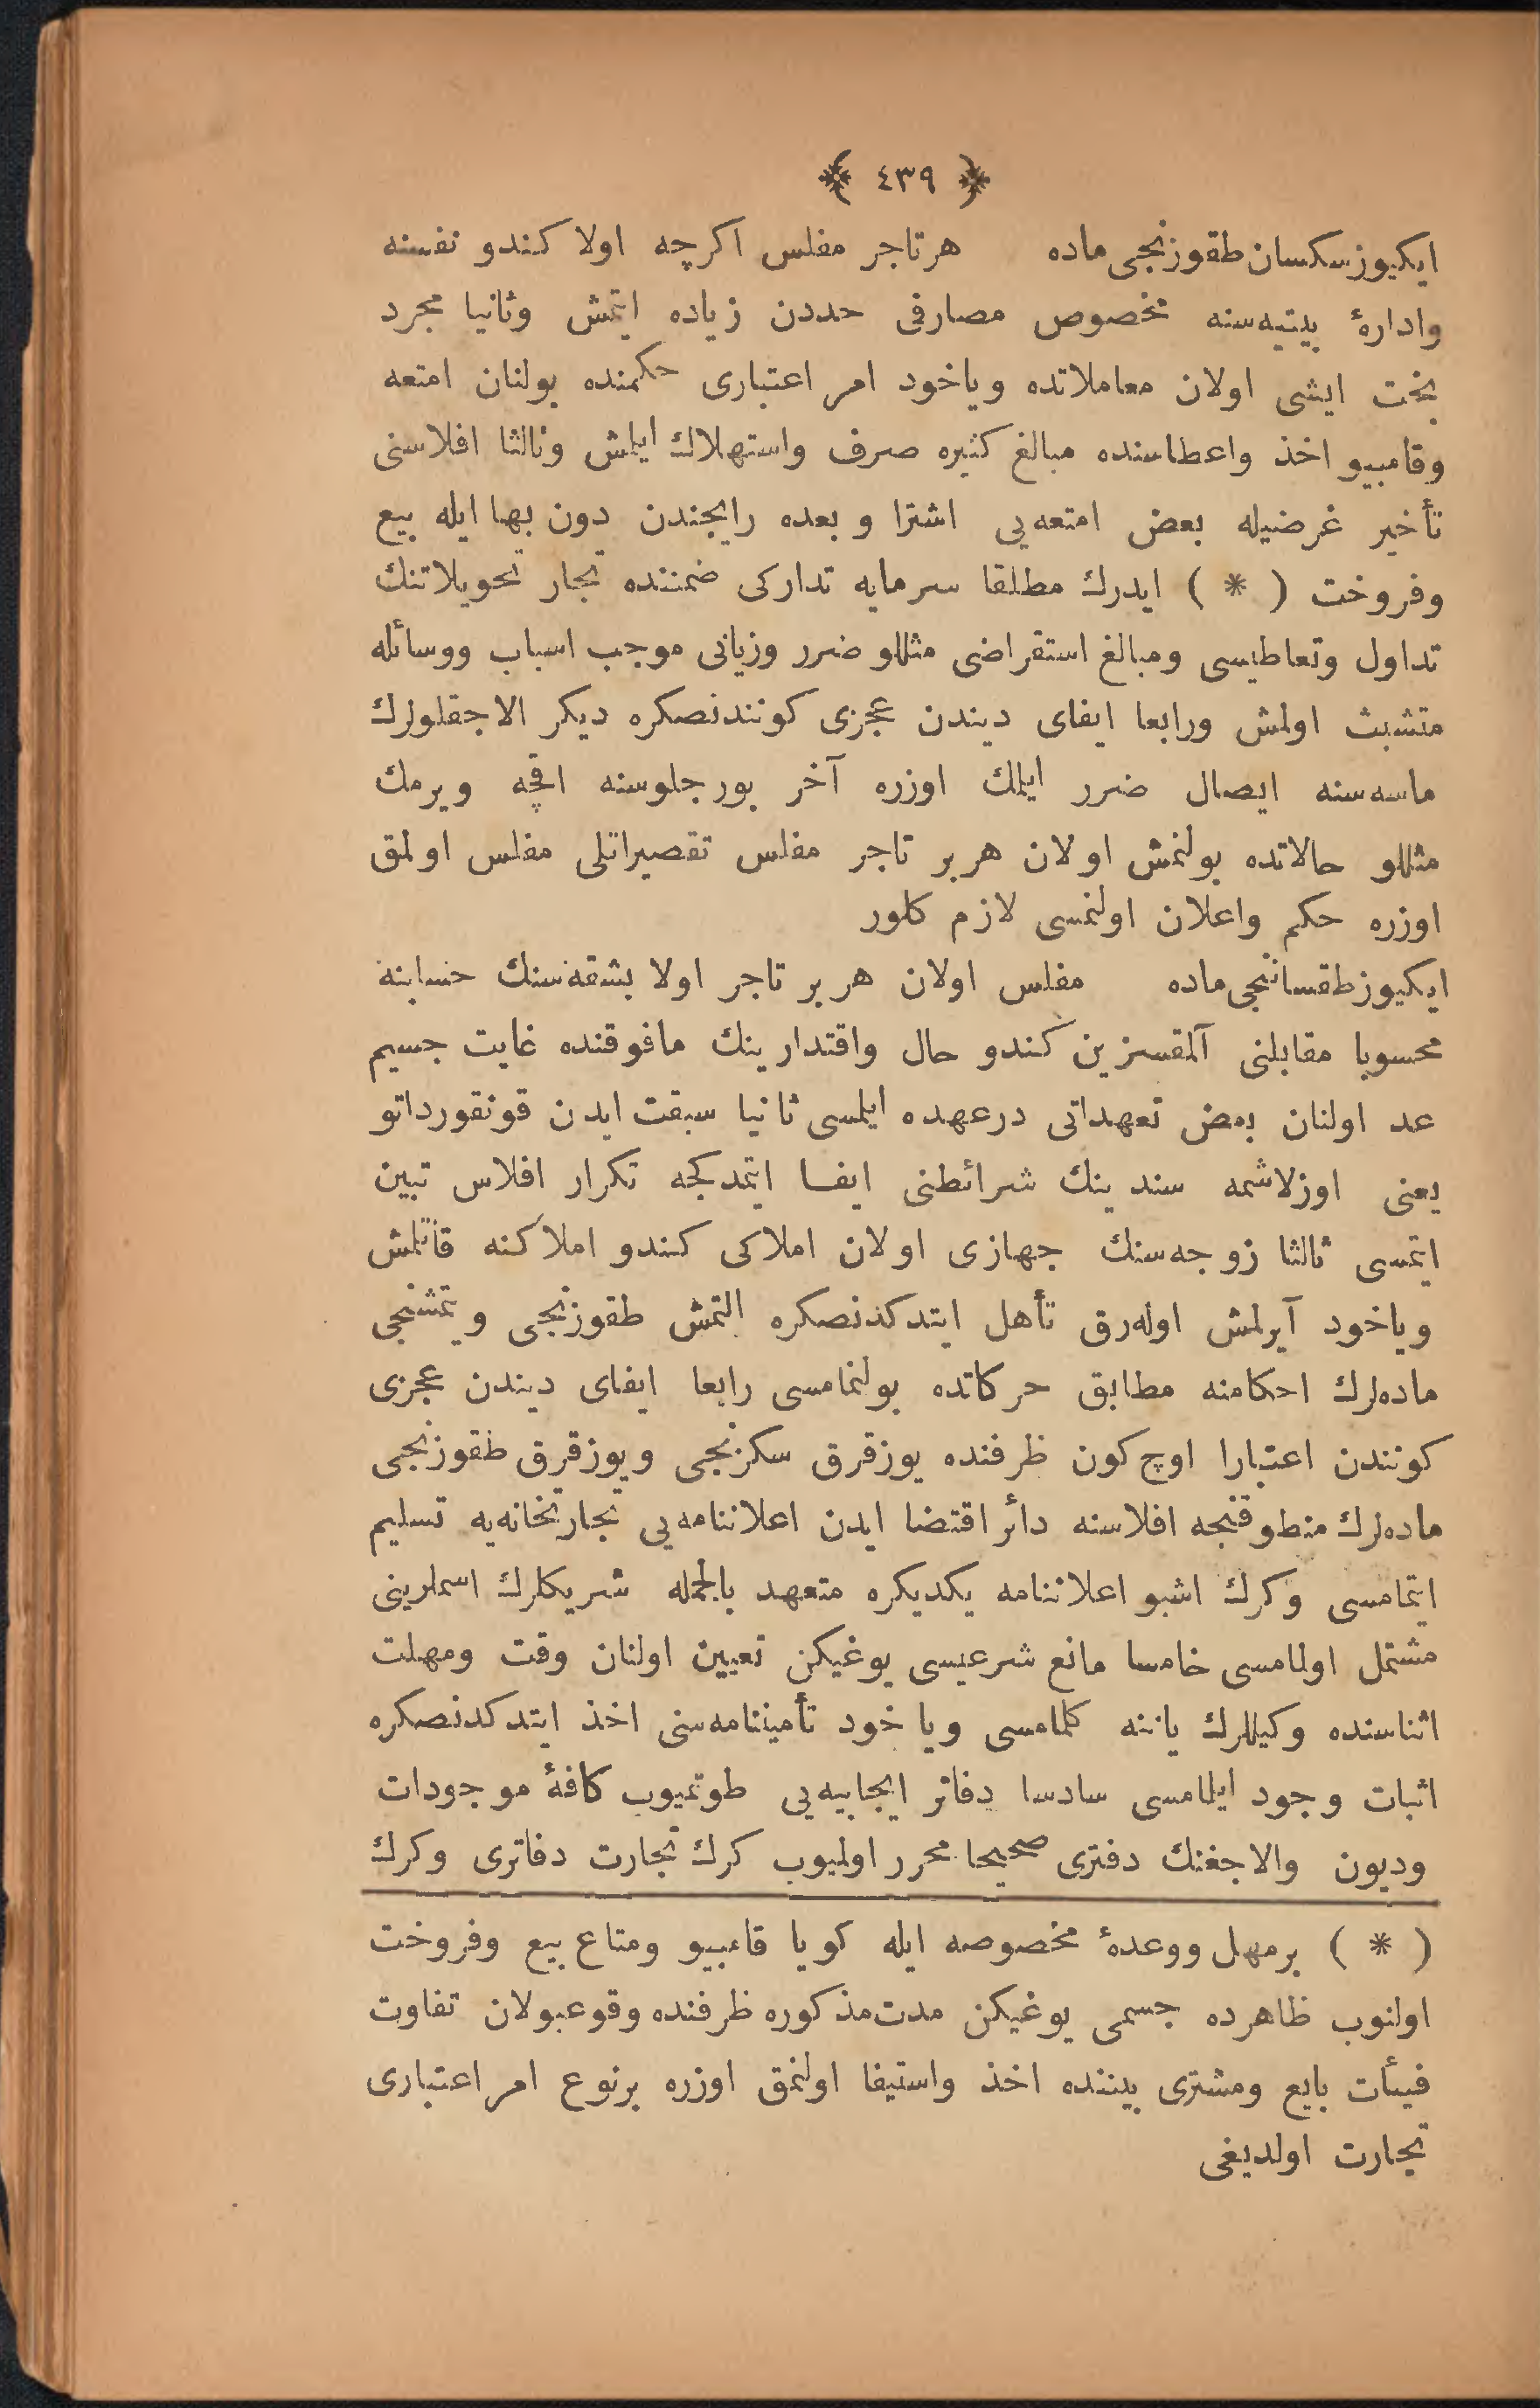 ﴿ ٤٣٩ ﴾
ایکیوز سکسان طقوزنجی ماده هر تاجر مفلس اکرچه اولا کندو نفسنه
وادارۀ بیتیه‌سنه مخصوص مصارفی حددن زیاده ایتمش وثانیا مجرد
بخت ایشی اولان معاملاتده ویاخود امر اعتباری حکمنده بولنان امتعه
وقامبیو اخذ واعطاسنده مبالغ کثیره صرف واستهلاك ایلمش وثالثا افلاسنی
تأخیر غرضیله بعض امتعه‌یی اشترا و بعده رایجندن دون بها ایله بیع
وفروخت ( * ) ایدرك مطلقا سرمایه تدارکی ضمننده تجار تحویلاتنك
تداول وتعاطیسی ومبالغ استقراضی مثللو ضرر وزیانی موجب اسباب ووسائله
متشبث اولمش ورابعا ایفای دیندن عجزی کونندنصکره دیکر الاجقلولرك
ماسه‌سنه ایصال ضرر ایلمك اوزره آخر بورجلوسنه اقچه ویرمك
مثللو حالاتده بولنمش اولان هر بر تاجر مفلس تقصیراتلی مفلس اولمق
اوزره حکم واعلان اولنمسی لازم کلور
ایکیوز طقساننجی ماده مفلس اولان هر بر تاجر اولا بشقه‌سنك حسابنه
محسوبا مقابلنی آلمقسزین کندو حال واقتدارینك مافوقنده غایت جسیم
عد اولنان بعض تعهداتی درعهده ایلمسی ثانیا سبقت ایدن قونقورداتو
یعنی اوزلاشمه سندینك شرائطنی ایفا ایتمدکجه تکرار افلاس تبین
ایتمسی ثالثا زوجه‌سنك جهازی اولان املاکی کندو املاکنه قاتلمش
ویاخود آیرلمش اوله‌رق تأهل ایتدکدنصکره التمش طقوزنجی و یتمشنجی
ماده‌لرك احکامنه مطابق حرکاتده بولنمامسی رابعا ایفای دیندن عجزی
کونندن اعتبارا اوچ کون ظرفنده یوز قرق سکزنجی ویوز قرق طقوزنجی
ماده‌لرك منطوقنجه افلاسنه دائر اقتضا ایدن اعلاننامه‌یی تجارتخانه‌یه تسلیم
ایتمامسی وکرك اشبو اعلاننامه یکدیکره متعهد بالجمله شریکلرك اسملرینی
مشتمل اولمامسی خامسا مانع شرعیسی یوغیکن تعیین اولنان وقت ومهلت
اثناسنده وکیللرك یاننه کلمامسی ویاخود تأمیننامه‌سنی اخذ ایتدکدنصکره
اثبات وجود ایلمامسی سادسا دفاتر ایجابیه‌یی طوتمیوب کافۀ موجودات
ودیون والاجغنك دفتری صحیحا محرر اولمیوب کرك تجارت دفاتری وکرك
( * ) بر مهل ووعدۀ مخصوصه ایله کویا قامبیو ومتاع بیع وفروخت
اولنوب ظاهرده جسمی یوغیکن مدت مذکوره ظرفنده وقوعبولان تفاوت
فیئات بایع ومشتری بیننده اخذ واستیفا اولنمق اوزره برنوع امر اعتباری
تجارت اولدیغی